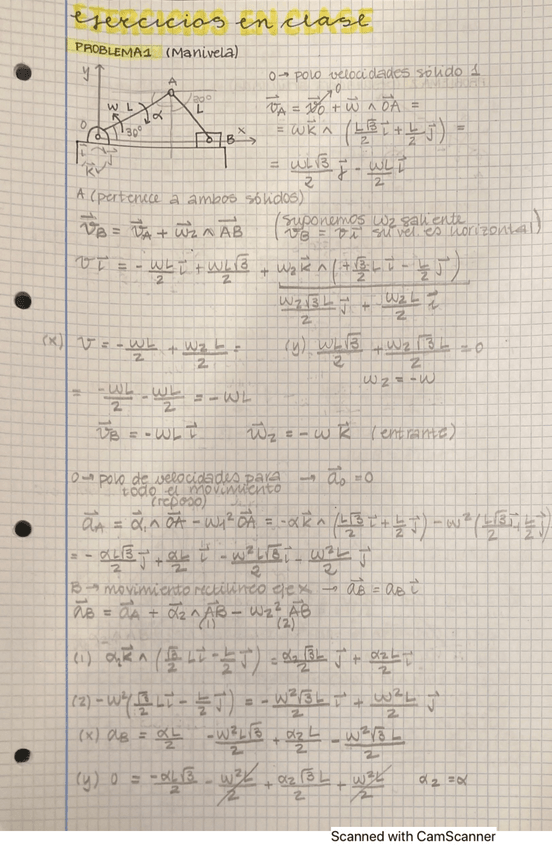 ejercicios en clase
PROBLEMA 1 (Manivela)
y A 30° W L α L O 30° B x i j k
O → polo velocidades sólido 1
v⃗A = v⃗0 + w⃗ ∧ OA⃗ =
= wk⃗ ∧ (L√3/2 i⃗ + L/2 j⃗) =
= wL√3/2 j⃗ - wL/2 i⃗
A (pertenece a ambos sólidos)
v⃗B = v⃗A + w⃗2 ∧ AB⃗ (suponemos w2 saliente
v⃗B = v i⃗ su vel. es horizontal)
v i⃗ = - wL/2 i⃗ + wL√3/2 + w2 k⃗ ∧ (+√3/2 L i⃗ - L/2 j⃗)
w2√3L/2 j⃗ + w2L/2 i⃗
(x) v = -wL/2 + w2L/2 = (y) wL√3/2 + w2√3L/2 = 0
w2 = -w
= -wL/2 - wL/2 = -wL
v⃗B = -wL i⃗ w⃗2 = -w k⃗ (entrante)
O → polo de velocidades para → a⃗0 = 0
todo el movimiento
(reposo)
a⃗A = α⃗1 ∧ OA⃗ - w1² OA⃗ = -αk⃗ ∧ (L√3/2 i⃗ + L/2 j⃗) - w² (L√3/2 i⃗ + L/2 j⃗)
= - αL√3/2 j⃗ + αL/2 i⃗ - w²L√3/2 i⃗ - w²L/2 j⃗
B → movimiento rectilineo eje x → a⃗B = aB i⃗
a⃗B = a⃗A + α⃗2 ∧ AB⃗ - w2² AB⃗
(1) (2)
(1) α2k⃗ ∧ (√3/2 L i⃗ - L/2 j⃗) = α2√3L/2 j⃗ + α2L/2 i⃗
(2) -w² (√3/2 L i⃗ - L/2 j⃗) = - w²√3L/2 i⃗ + w²L/2 j⃗
(x) aB = αL/2 - w²L√3/2 + α2L/2 - w²√3L/2
(y) 0 = -αL√3/2 - w²L/2 + α2√3L/2 + w²L/2 α2 = α
Scanned with CamScanner